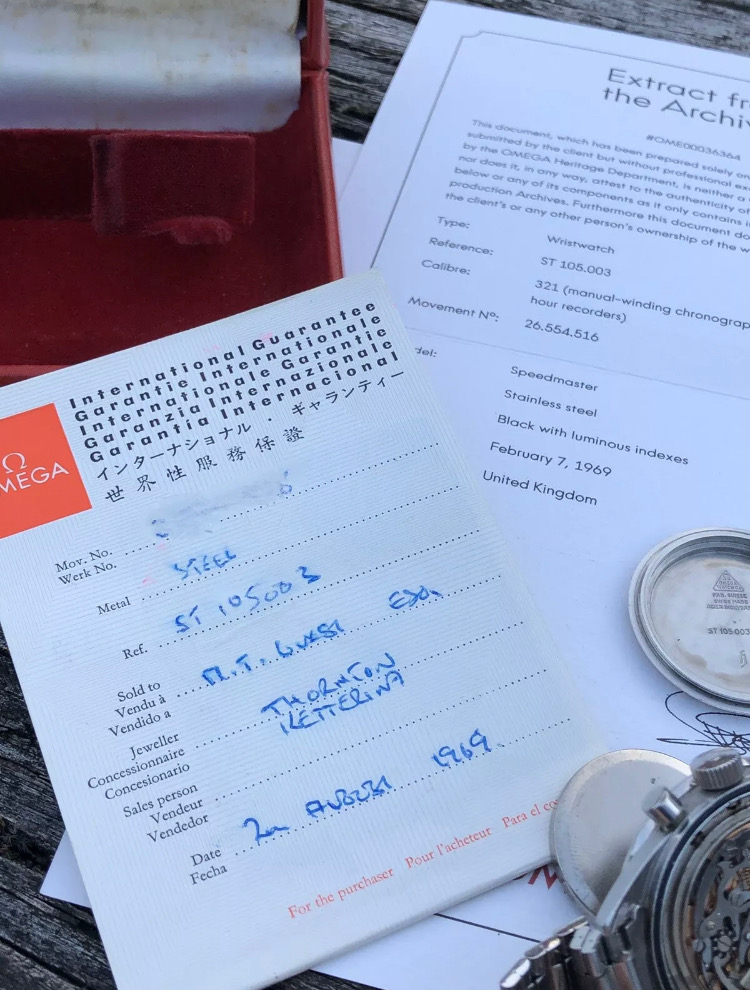 Extract fr
the Archiv
#OME00036364
This document, which has been prepared solely
submitted by the client but without professional
by the OMEGA Heritage Department, is neither a
nor does it, in any way, attest to the authenticity
below or any of its components as it only contains
production Archives. Furthermore this document
the client's or any other person's ownership of the
Type: Wristwatch
Reference: ST 105.003
Calibre: 321 (manual-winding chronograp
hour recorders)
Movement Nº: 26.554.516
del: Speedmaster
Stainless steel
Black with luminous indexes
February 7, 1969
United Kingdom
International Guarantee
Garantie Internationale
Internationale Garantie
Garanzia Internazionale
Garantía Internacional
インターナショナル・ギャランティー
世界性服務保證
Ω
OMEGA
Mov. No.
Werk No.
Metal STEEL
Ref. ST 105003
Sold to M.T. GUEST ESQ.
Vendu à
Vendido a
Jeweller THORNTON
Concessionnaire KETTERING
Concesionario
Sales person
Vendeur
Vendedor
Date 2nd AUGUST 1969.
Fecha
For the purchaser Pour l'acheteur Para el co
ST 105.003